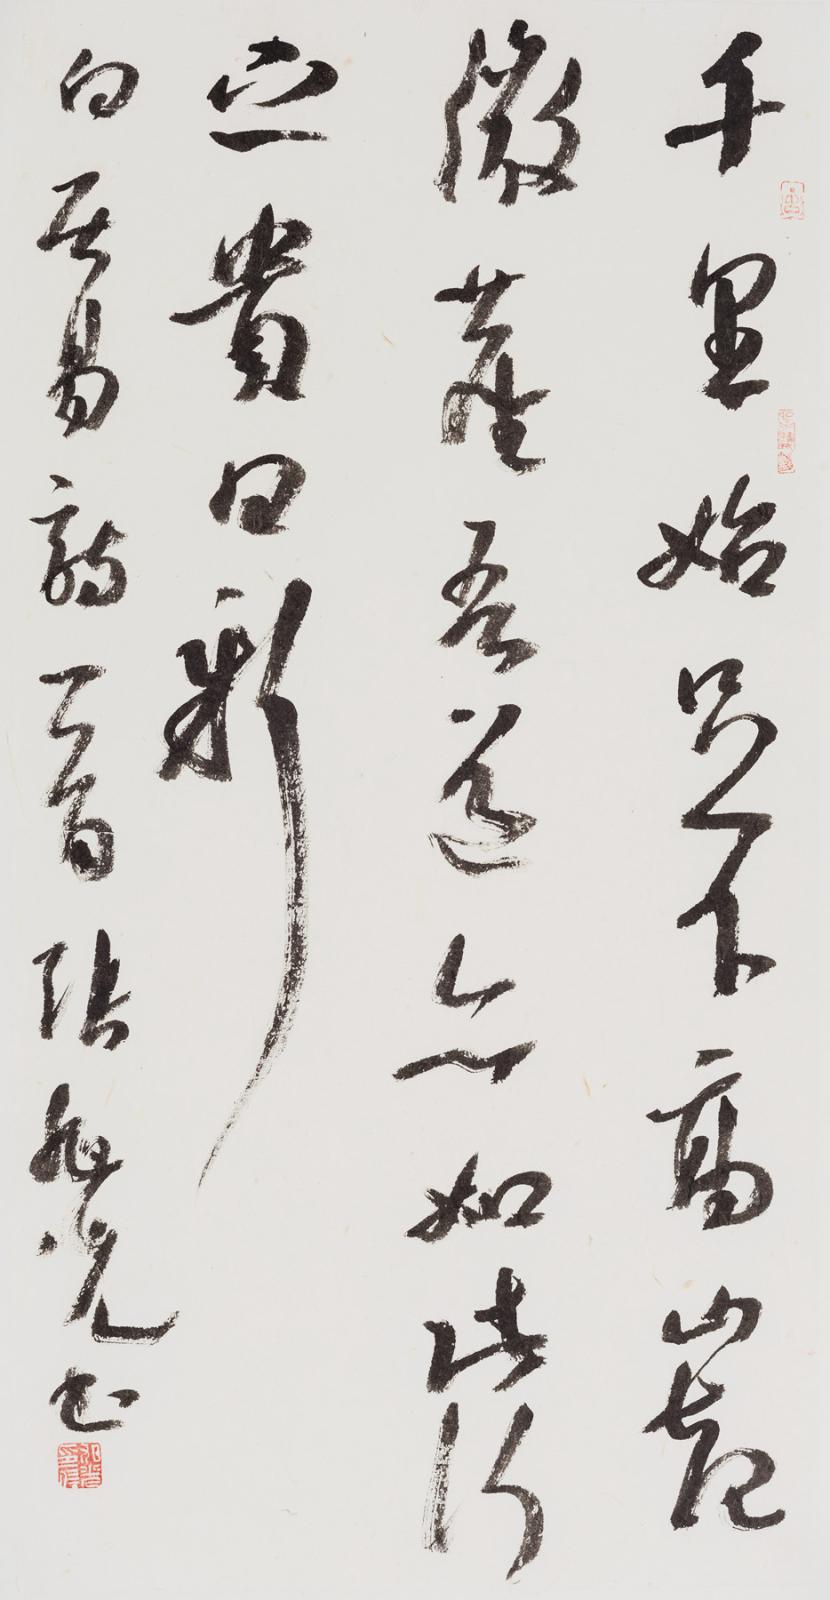 千里始足下高山起
微塵吾道亦如此行
之貴日新
白居易詩一首張旭光书